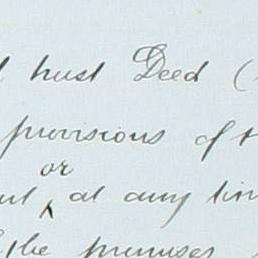 trust Deed (
provisions of t
or
at any tim
the premises